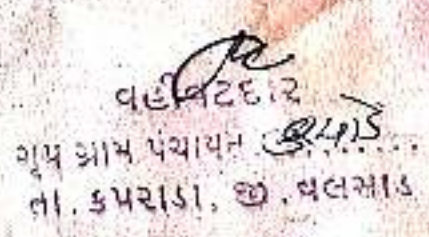 વહીવટદાર
ગૃપ ગ્રામ પંચાયત ........
તા. કપરાડા. જી. વલસાડ